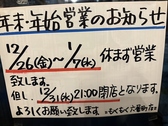 年末・年始営業のお知らせ
12/26(金)〜1/7(水) 休まず営業
致します。
但し、12/31(水)21:00閉店となります。
よろしくお願い致します。
いちくもく 六番町店